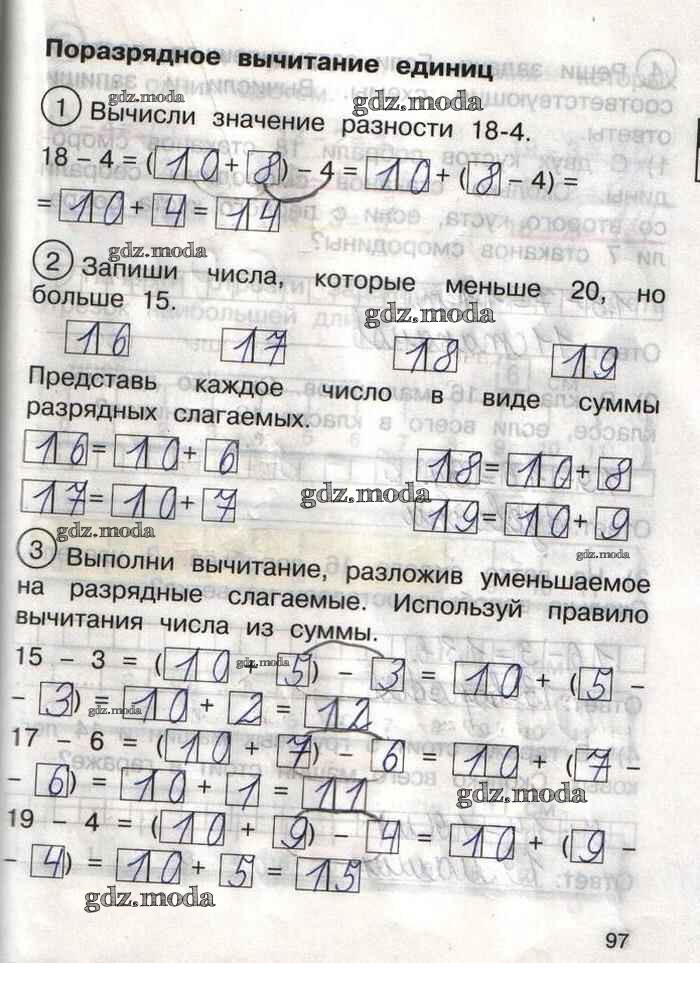 Поразрядное вычитание единиц
gdz.moda gdz.moda
1 Вычисли значение разности 18-4.
18 – 4 = (10 + 8) – 4 = 10 + (8 – 4) =
= 10 + 4 = 14
gdz.moda
2 Запиши числа, которые меньше 20, но
больше 15.
gdz.moda
16 17 18 19
Представь каждое число в виде суммы
разрядных слагаемых.
16 = 10 + 6 18 = 10 + 8
17 = 10 + 7 gdz.moda 19 = 10 + 9
gdz.moda gdz.moda
3 Выполни вычитание, разложив уменьшаемое
на разрядные слагаемые. Используй правило
вычитания числа из суммы.
15 – 3 = (10 + 5) – 3 = 10 + (5 –
gdz.moda
– 3) = 10 + 2 = 12
gdz.moda
17 – 6 = (10 + 7) – 6 = 10 + (7 –
– 6) = 10 + 1 = 11
gdz.moda
19 – 4 = (10 + 9) – 4 = 10 + (9 –
– 4) = 10 + 5 = 15
gdz.moda
97